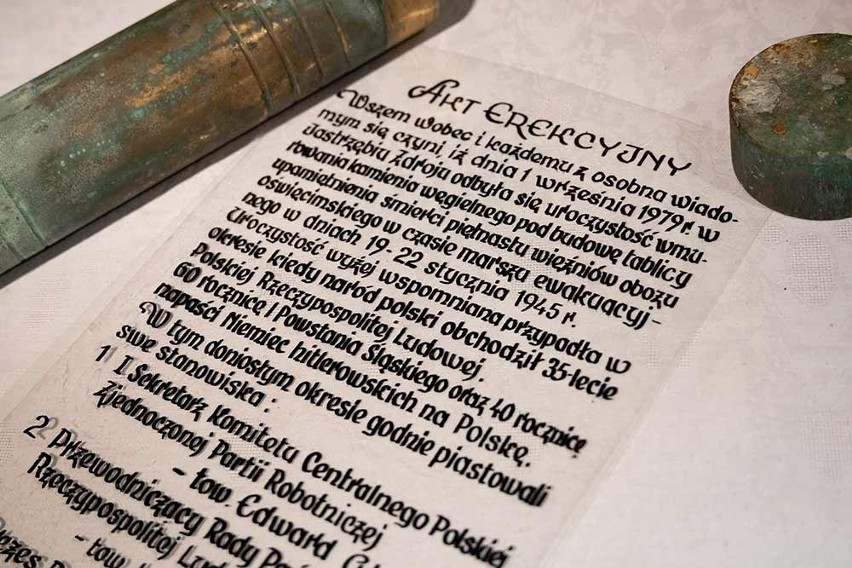 Akt Erekcyjny
Wszem wobec i każdemu z osobna wiado-
mym się czyni, iż dnia 1 września 1979 r. w
Jastrzębiu Zdroju odbyła się uroczystość wmu-
rowania kamienia węgielnego pod budowę tablicy
upamiętnienia śmierci piętnastu więźniów obozu
oświęcimskiego w czasie marszu ewakuacyj-
nego w dniach 19. 22 stycznia 1945 r.
Uroczystość wyżej wspomniana przypadła w
okresie kiedy naród polski obchodził 35-lecie
Polskiej Rzeczypospolitej Ludowej.
60 rocznicę I Powstania Śląskiego oraz 40 rocznicę
napaści Niemiec hitlerowskich na Polskę.
W tym doniosłym okresie godnie piastowali
swe stanowiska:
1) I Sekretarz Komitetu Centralnego Polskiej
Zjednoczonej Partii Robotniczej
- tow. Edward
2) Przewodniczący Rady
Rzeczypospolitej
- tow.